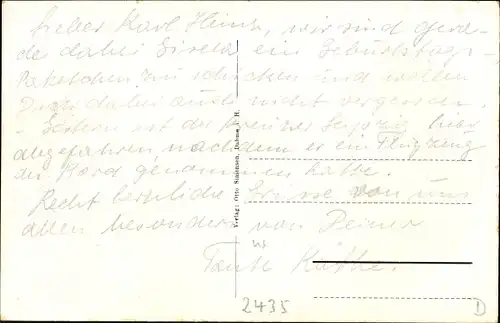 Lieber Karl Heinz, wir sind gera-
de dabei Gisela ein Geburtstags-
Päckchen zu schicken und wollen
Dich dabei auch nicht vergessen.
- Gestern ist der Kreuzer Leipzig hier
abgefahren, nachdem er ein Flugzeug
an Bord genommen hatte.
Recht herzliche Grüsse von uns
allen besonders von Deiner
Tante Käthe.
Verlag: Otto Simonsen, Dahme i. H.
2435
D